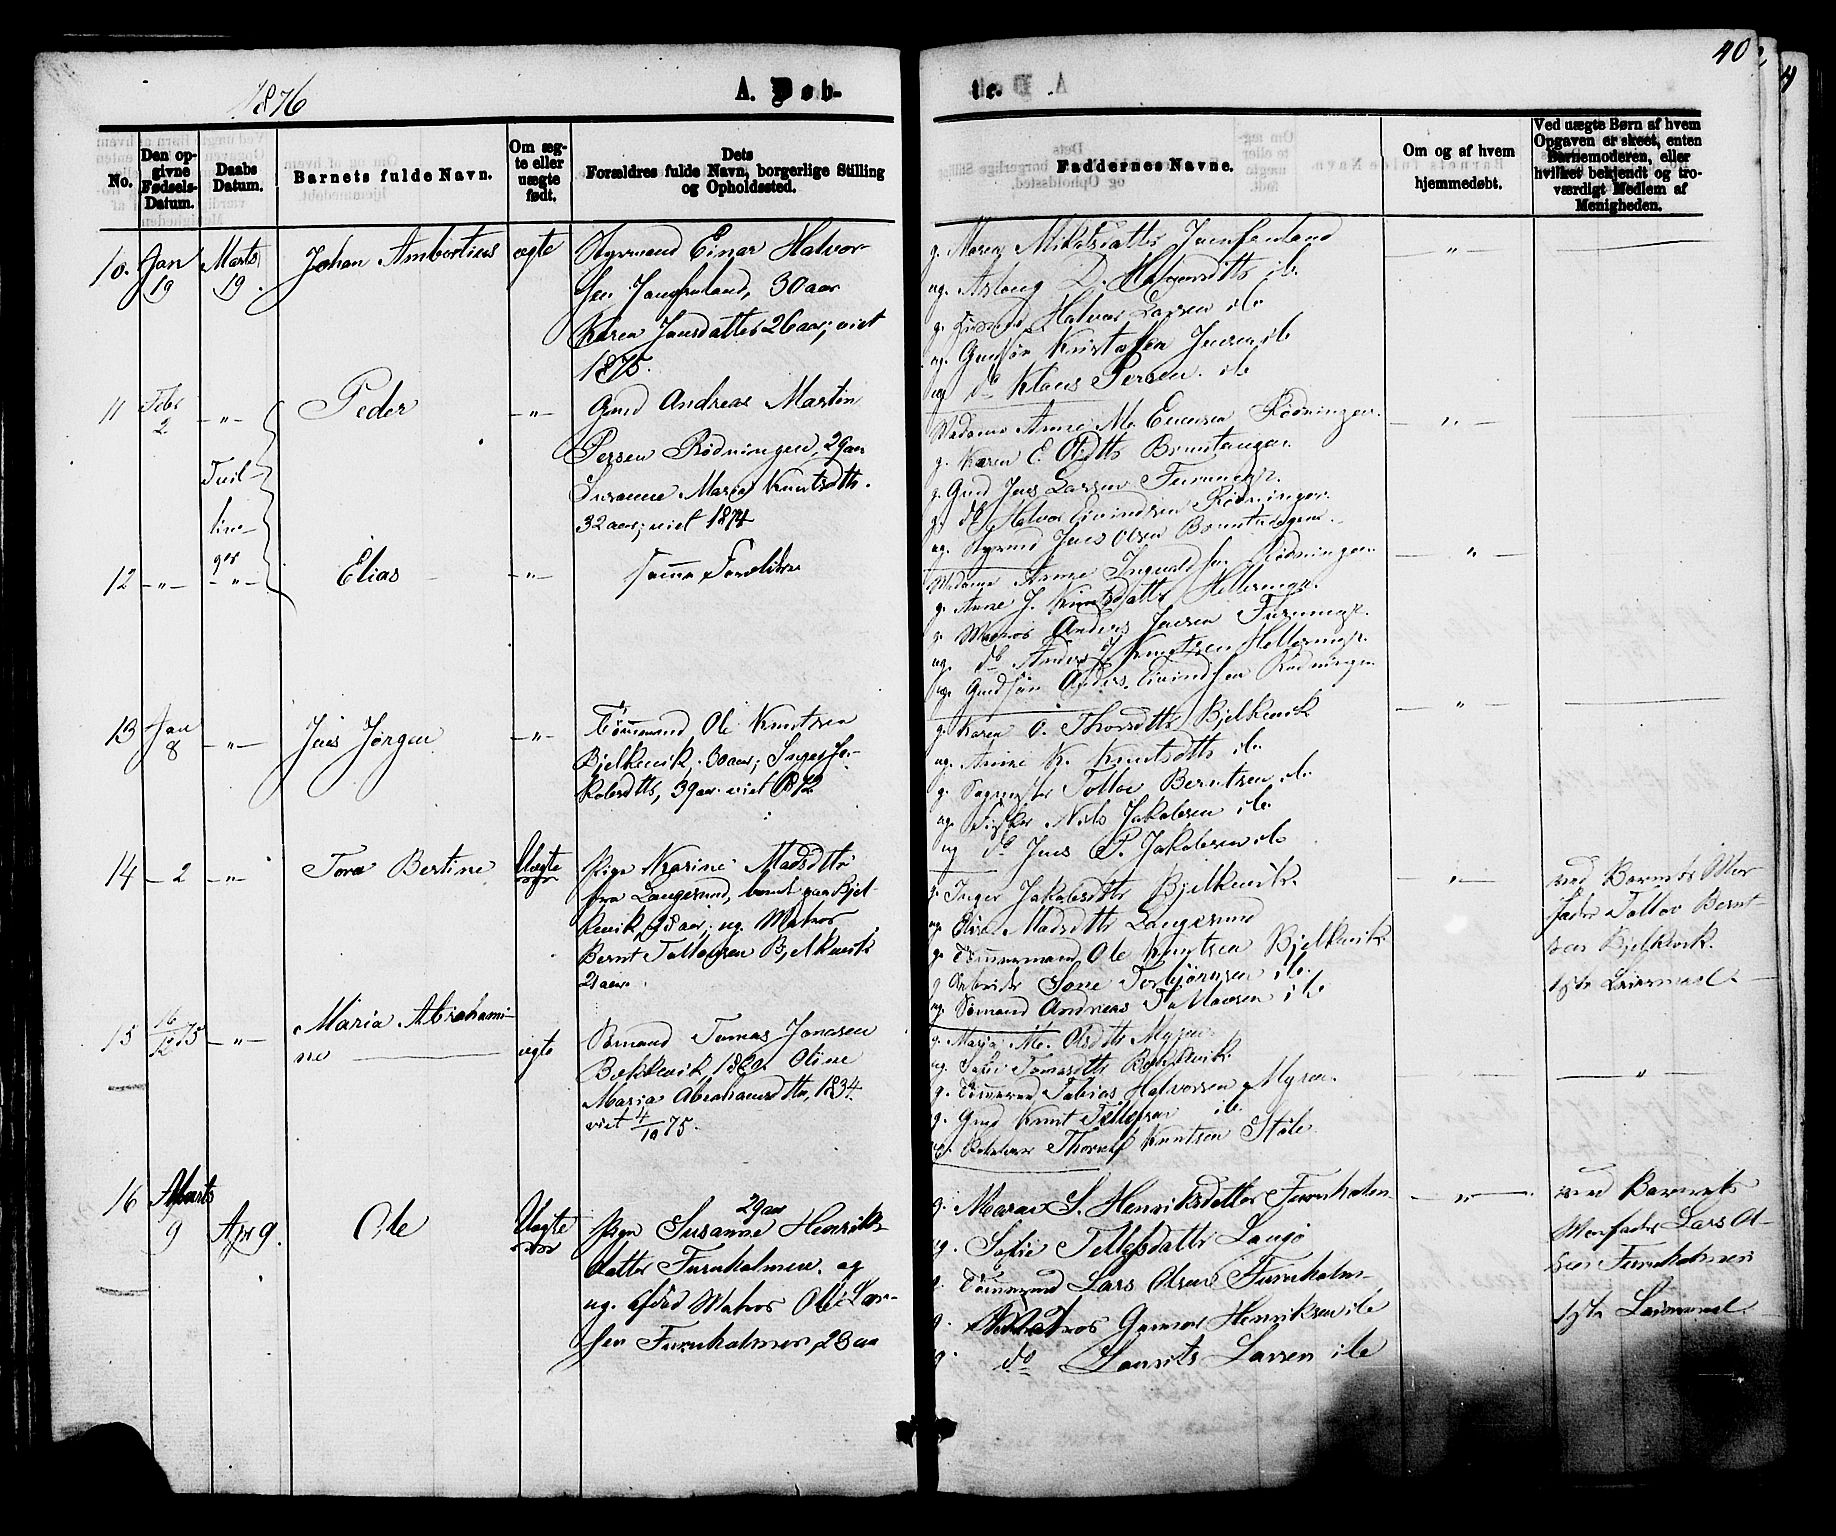 1876
A. Døb-
te.
40
No.
Den opgivne Fødsels-Datum.
Daabs Datum.
Barnets fulde Navn.
Om ægte eller uægte født.
Dets Forældres fulde Navn, borgerlige Stilling og Opholdssted.
Faddernes Navne.
Om og af hvem hjemmedøbt.
Ved uægte Børn af hvem Opgaven er skeet, enten Barnemoderen, eller hvilket bekjendt og troværdigt Medlem af Menigheden.
10. Jan 19 Marts 19. Johan Ambortius ægte
Styrmand Einar Halvor-
sen Jomfruland, 30 aar
Karen Jensdatter 26 aar; viet
1875.
g. Maren Nikolsdatter Jomfruland
ug. Aslaug D. Halvorsdtts ib.
Halvor Larsen ib
ug. Gmdsøn Kristoffer Jensen ib
ug do Klaus Persen ib
11 Febr 2 -"- Peder -"-
Gmd Andreas Martin
Persen Rødningen, 29 aar
Susanne Maria Knutsdtr.
32 aar; viet 1874
Madame Anne M. Rødningen.
g. Karen E. Olsdtts
g. Gmd Jens Larsen
g. do Halvor Eivindsen Rødningen.
ug. Styrmd Jens Olsen
Tvil-
lin-
ger
12 -"- -"- Elias -"-
Samme Forældre
Madame Anne Rødningen
g. Anne J. Knutsdatter
g. Matros Anders Jensen
ug. do Anders Knutsen
ug. Gmdsøn Anders Eivindsen Rødningen
13 Jan 8 -"- Jens Jørgen -"-
Tømmermand Ole Knutsen
Bjelkevik, 30 aar; Inger Ja-
kobsdtts, 39 aar viet 1872
g. Karen O. Thorsdtts Bjelkevik
ug. Anne K. Knutsdtts ib.
g. Tollov Berntsen ib.
ug. Fisker Niels Jakobsen ib.
ug do Jens P. Jakobsen ib
14 -2 -"- Tora Bertine Uægte
Pige Karine Madsdtr
fra Langesund, paa Bjel
kevik, 28 aar; ug. Matros
Bernt Tollovsen Bjelkevik
21 aar.
g. Inger Jakobsdtts Bjelkevik.
ug. Madsdtts Langesund
g. Tømmermand Ole Knutsen Bjelkevik
g Arbeider Torbjørnsen ib.
ug. Sømand Andreas Madsen ib
ved Barnets Mor
fader Tollov Bernt
sen Bjelkevik.
1ste Leiermaal
15 16/12 75 -"- Maria Abrahami-
ne ægte
Sømand Tomas Jonasen
Bekkevik, Oline
Maria Abrahamsdtter, 1834.
viet 4/10 75.
g. Maria M. Olsdtts Myren
ug. Sofie Tomasdtts Bekkevik.
g. Tømmermand Tobias Halvorsen Myren.
g. Gmd Knut Tellefsen ib.
Thorulf Knutsen Støle
16 Marts 9 Apr 9. Ole Uægte
29 aar
Pige Susanne Henriks-
datter Furuholmen. og
ug. afdød Matros Ole Lar-
sen Furuholmen, 23 aa
g. Maren S. Henriksdatter Furuholmen
ug. Sofie Tellefsdatter Langø
g. Tømmermand Lars Olsen Furuholm-
g. Matros Gunnar Henriksen ib
g. do Laurits Larsen ib
ved Barnets
Morfader Lars Ol-
sen Furuholmen
1ste Leiermaal